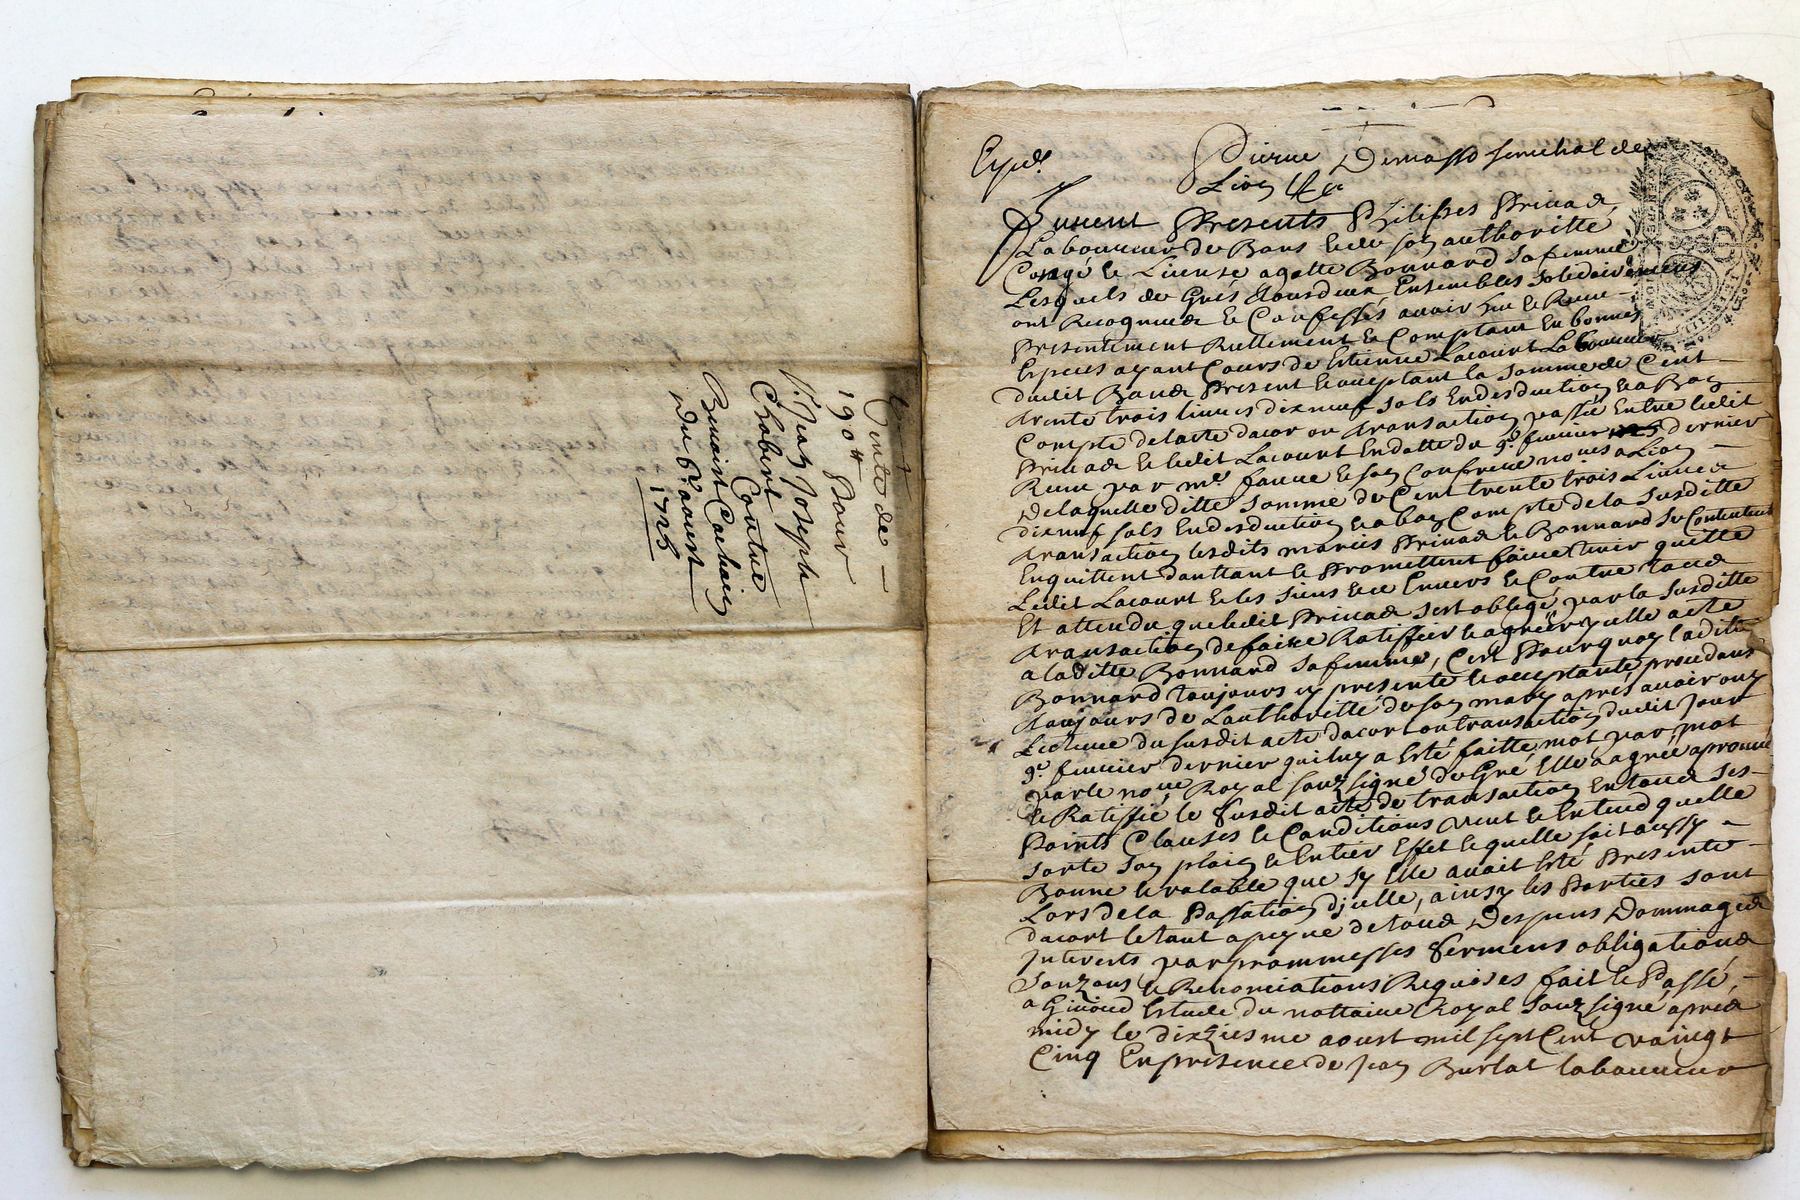 Vente de
190 tt Pour
Sr. Jean Joseph
Chabert
Contre
Benoist Cochain
du 6e aoust
1725
Exped.
Pierre Demasso senechal de
Lion &c
Furent Presents Philippes Privade
Laboureur de Bans et de son authoritté
Congé et Lisense agatte Bonnard sa femme
Lesquels de Grés tous deux Ensembles solidairement
ont Recognude et Confessés avoir heu et Receu
Presentement Reellement et Comptant En bonnes
Especes ayant Cours de Estienne Lacourt Laboureur
dudit Bande Present et acceptant la somme de Cent
trente trois livres dix neuf sols En desduction et a Bon
Compte de lacte dacor ou transaction passée Entre ledit
Privade et ledit Lacourt En datte du 9e. fevrier dernier
Receu par me. faure et son Confrere no.res a Lion
de laquelle ditte somme de Cent trente trois Livres
dix neuf sols En desduction et a bon Compte de la susditte
transaction lesdits mariés Privade et Bonnard se Contentent
Enquittent dauttant et Promettent faire tenir quitte
Ledit Lacourt et les siens Envers et Contre toude
Et attendu que ledit Privade sest obligé par la susditte
transaction de faire Ratiffier et agréer icelle acte
a laditte Bonnard sa femme, Cest Pourquoy laditte
Bonnard toujours icy présente et acceptante procedant
toujours de Lauthoritté de son mary aprés avoir ouy
Lecture du susdit acte dacort ou transaction dudit jour
9e. fevrier dernier qui luy a esté faitte mot par mot
par le no.re Royal souzsigné de Gré Elle a agréé aprouvé
et Ratiffié le susdit acte de transaction En toude ses
Points Clauses et Conditions veut et Entend quelle
sorte son plain et Entier Effet et quelle soit aussy
Bonne et valable que sy Elle avoit esté Presente
Lors de la Passation d'icelle, ainsy les Parties sont
dacort et tant a peyne de toude Despens Dommagede
Interests par prommesses sermens obligationde
et Renonciations Requises fait et Passé
a Givord Estude du nottaire Royal souzsigné aprés
midy le dixziesme aoust mil sept Cent vaingt
Cinq En présence de Jean Burlat laboureur